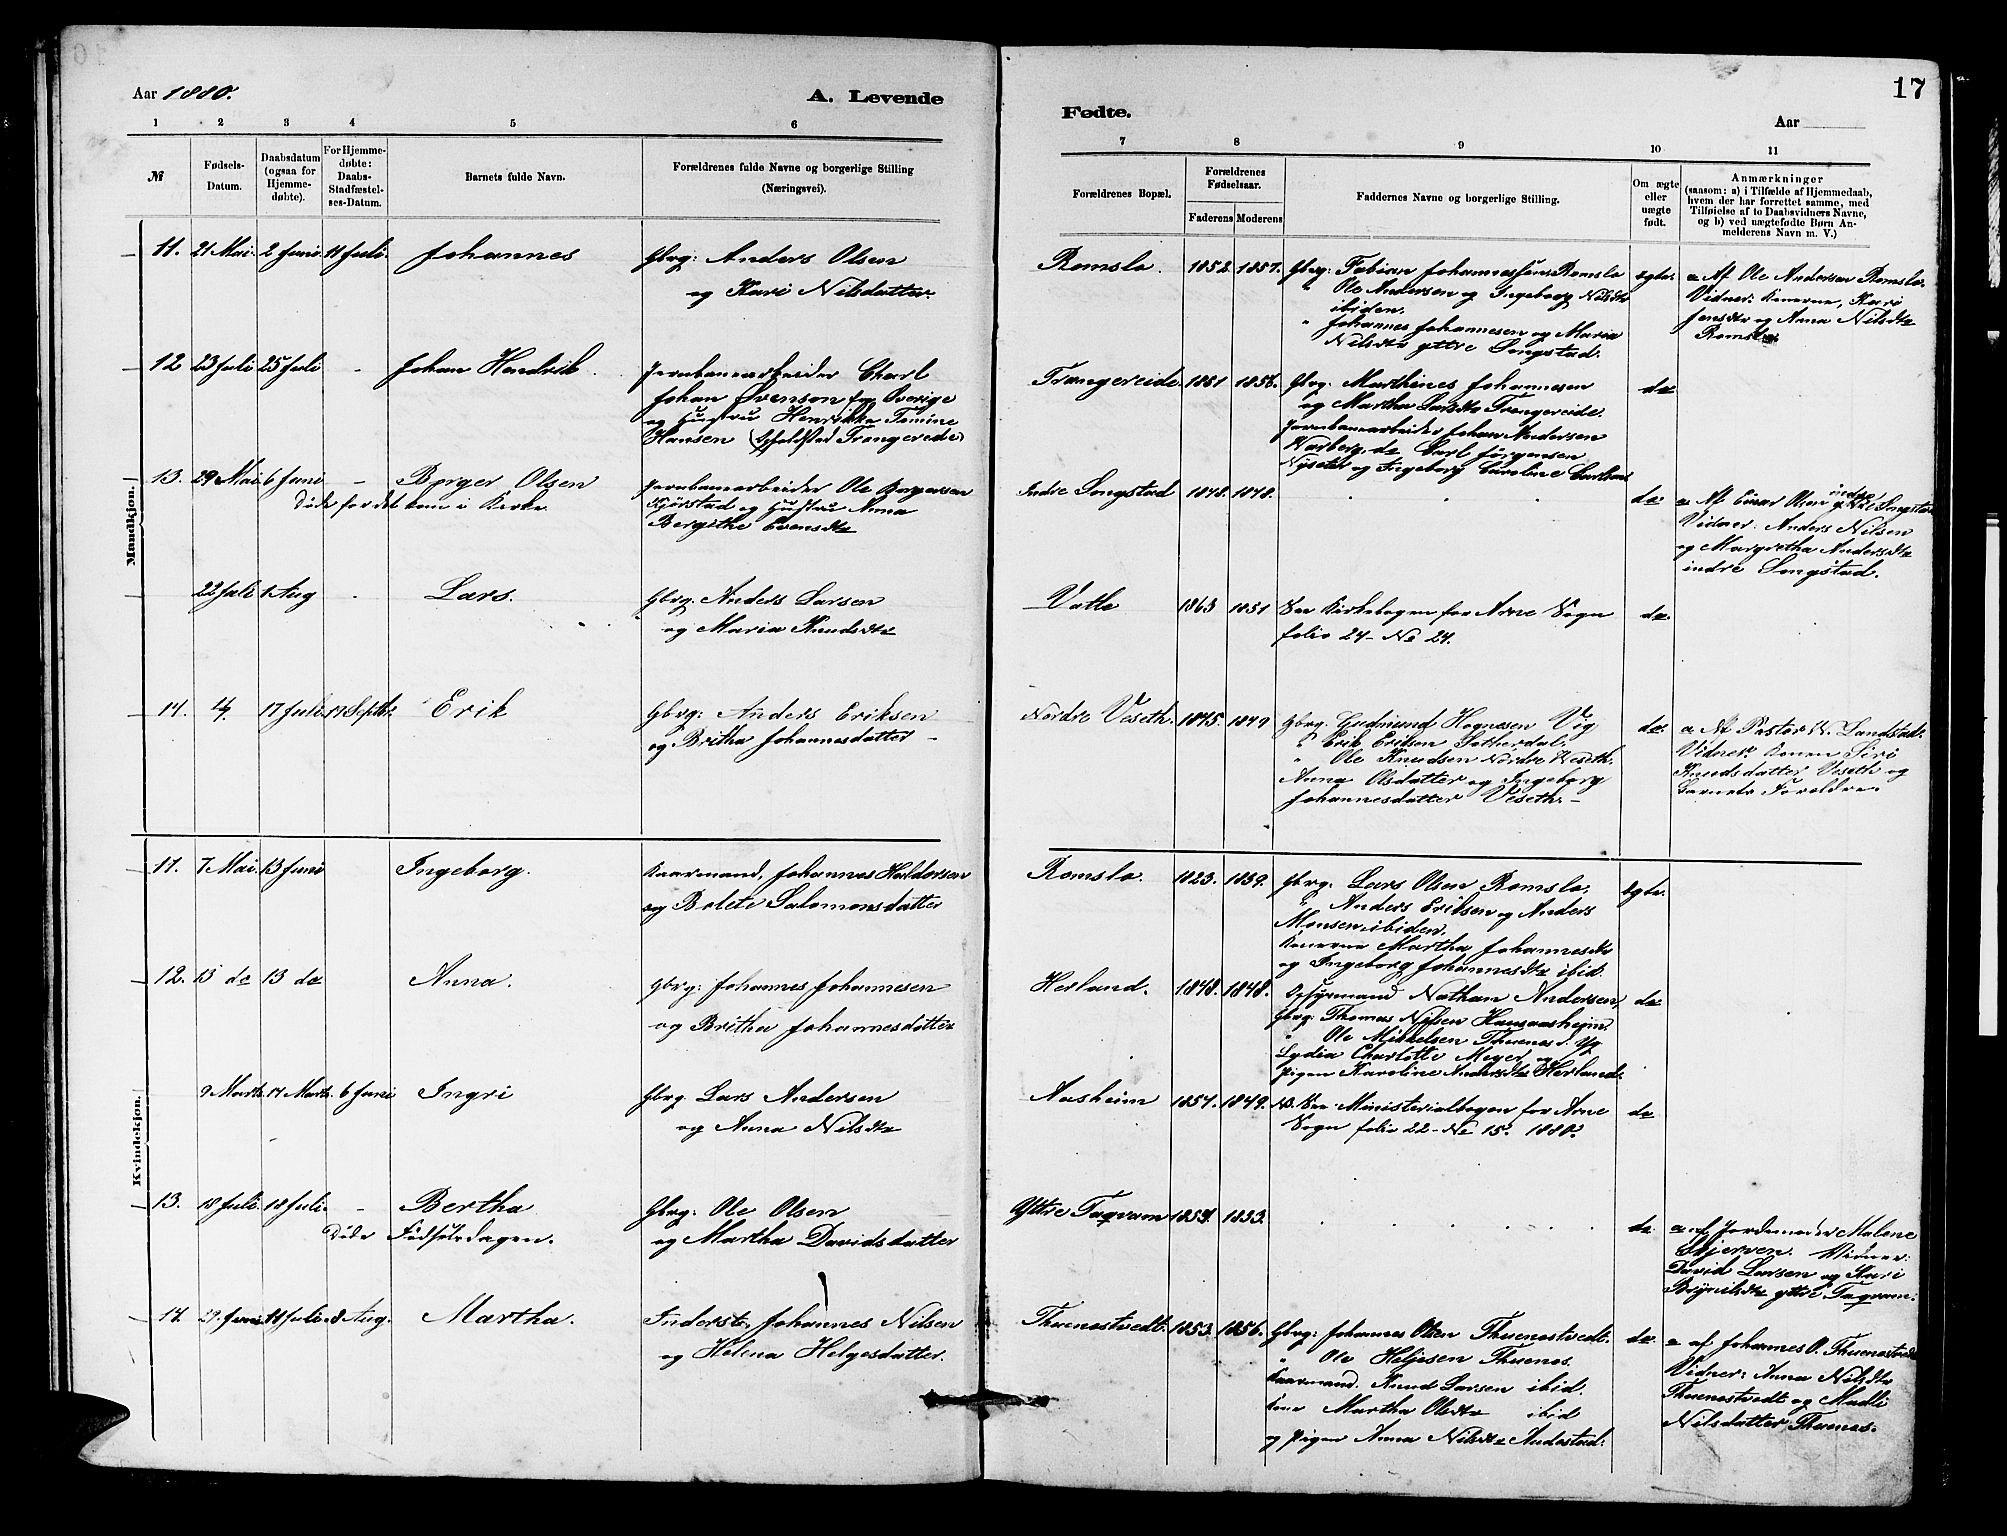 Aar 1880.
A. Levende
1 2 3 4 5 6
№
Fødsels-
Datum.
Daabsdatum
(ogsaa for
Hjemme-
døbte).
For Hjemme-
døbte:
Daabs-
Stadfæstel-
ses-Datum.
Barnets fulde Navn.
Forældrenes fulde Navne og borgerlige Stilling
(Næringsvei).
Mandkjøn.
11. 21 Mai 2 Juni 11 Juli. Johannes
Gbrg: Anders Olsen
og Kari Nilsdatter.
12 23 Juli 25 Juli - Johan Hendrik.
Jernbanearbeider Charl
Johan Svenson fra Sverige
og Hustru Henrikka Tomine
Hansen (Opholdsted Trengereide)
13. 29 Mai 6 Juni - Borger Olsen
Døde før det kom i Kirke.
Jernbanearbeider Ole Borgersen
Kjørstad og Hustru Anna
Bergithe Evensdtr
22 Juli 1 Aug - Lars.
Gbrg. Anders Larsen
og Maria Knudsdtr
14. 4/7 17 Juli 19 Septbr. Erik
Gbrg: Anders Eriksen
og Britha Johannesdatter -
Kvindekjøn.
11. 7 Mai. 13 Juni Ingeborg.
Kaarmand, Johannes Haldorsen
og Bolete Salomonsdatter
12. 13 do 13 do Anna.
Gbrg: Johannes Johannesen
og Britha Johannesdatter
9 Marts. 17 Marts. 6 Juni Ingri
Gbrg Lars Andersen
og Anna Nilsdtr
13. 18 Juli. 18 Juli. - Bertha
Døde Fødselsdagen.
Gbrg: Ole Olsen
og Martha Davidsdatter
14. 29 Juni 11 Juli. 8 Aug. Martha.
Inderst. Johannes Nilsen
og Helena Helgesdatter.
17
Fødte.
Aar
7 8 9 10 11
Forældrenes Bopæl.
Forældrenes
Fødselsaar.
Faderens Moderens
Faddernes Navne og borgerlige Stilling.
Om ægte
eller
uægte
født.
Anmærkninger
(saasom: a) i Tilfælde af Hjemmedaab,
hvem der har forrettet samme, med
Tilføielse af to Daabsvidners Navne,
og b) ved uægtefødte Børn An-
melderens Navn m. V.)
Romslo. 1852. 1857. Gbrg: Fabian Johannessen Romslo
" Ole Andersen og Ingeborg Nilsdtr
ibiden.
" Johannes Johannesen og Maria
Nilsdtr yttre Songstad.
ægte.
a Af Ole Andersen Romslo.
Vidner: Konerne, Kari
Jensdtr og Anna Nilsdtr
Romslo.
Trengereide. 1851 1856. Gbrg. Marthines Johannesen
og Martha Larsdtr Trengereide.
Jernbanearbeider Johan Andersen
Warberg, do Carl Jørgensen
Nyseter og Ingeborg Caroline
do
Indre Songstad 1848. 1848. do
a Af Einar Olsen indre Songstad
Vidner: Anders Nilsen
og Margretha Andersdtr
indre Songstad.
Vatle 1863 1851 See Kirkebogen for Arne Sogn
folio 24 - No 24.
do.
Nordre Veseth. 1845. 1849 Gbrg. Gudmund Hognesen Vig
" Erik Eriksen Sætherdal,
" Ole Knudsen Nordre Veseth.
Anna Olsdatter og Ingeborg
Johannesdatter Veseth. -
do.
a Af Pastor W. Landstad.
Vidner Konen Siri
Knudsdatter Veseth og
Barnets Forældre.
Romslo. 1823. 1839. Gbrg: Lars Olsen Romslo,
" Anders Eriksen og Anders
Monsen ibiden,
Konerne Martha Johannesdtr
og Ingeborg Johannesdtr ibid.
ægte.
Herland. 1848. 1848. Nathan Andersen,
Gbrg: Thomas Nilsen Hansaasheim
" Ole Mikkelsen Thuenes.
Lydia Charlotte Meyer og
Pigen Karoline Andersdtr Herland.
do
Aasheim 1854. 1849. NB. See Ministerialbogen for Arne
Sogn folio 22 - No 15. 1880.
do
Yttre Taqvam 1859. 1853. do
a af Jordemoder Malene
Skjerven. Vidner:
David Larsen og Kari
Brynildsdtr yttre Taqvam.
Thuenestvedt. 1853. 1856. Gbrg: Johannes Olsen Thuenestvedt.
" Ole Heljesen Thuenes.
Kaarmand. Knud Larsen ibid.
Kone Martha Olsdtr ibid
og Pigen Anna Nilsdtr Andestad.
do
a af Johannes O. Thuenestvedt
Vidner: Anna Nilsdtr
Thuenestvedt og Madli
Nilsdatter, Thuenes.